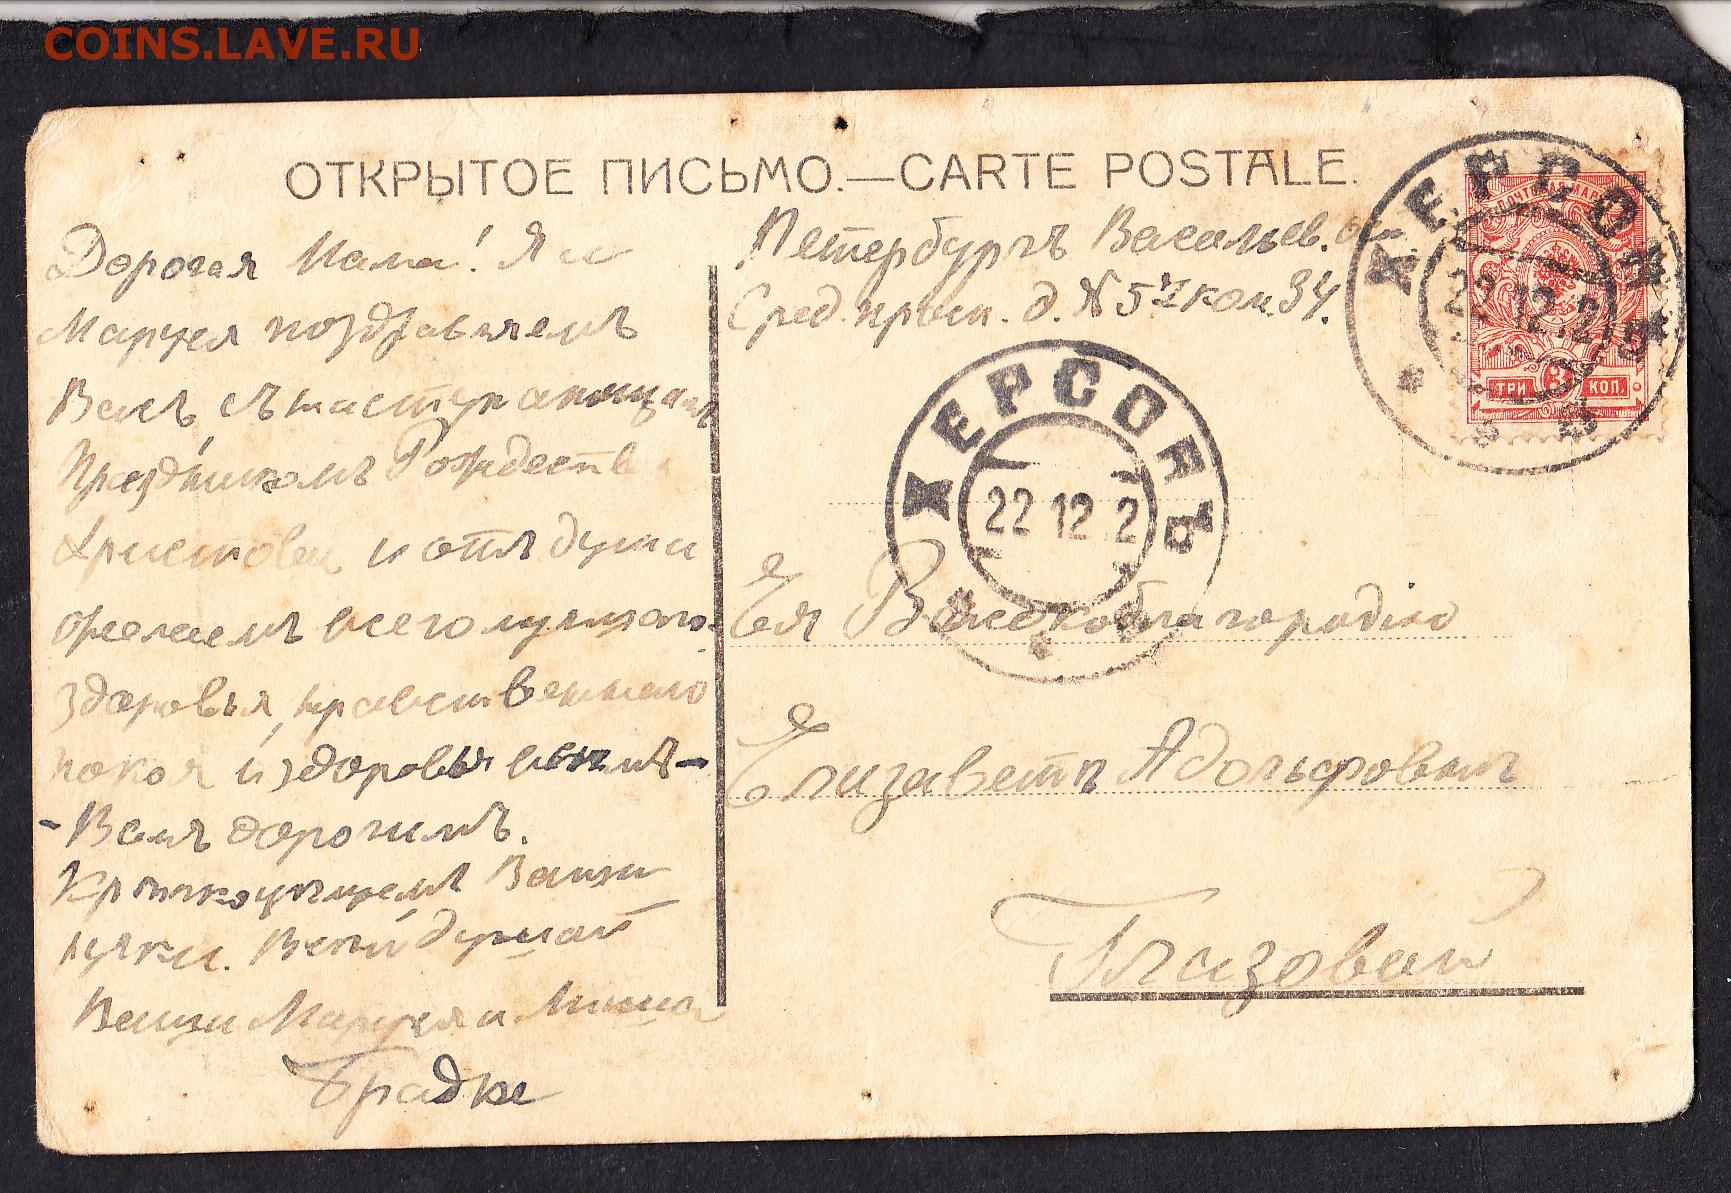 COINS.LAVE.RU
ОТКРЫТОЕ ПИСЬМО.—CARTE POSTALE.
Дорогая Мама! Я и
Маруся поздравляемъ
Васъ съ наступающимъ
Праздникомъ Рождества
Христова и отъ души
желаемъ всего лучшаго
здоровья, нравственнаго
покоя и здоровья всѣмъ
- Вамъ дорогимъ.
Крѣпко цѣлуемъ Ваши
ручки. Всей душой
Ваши Маруся и Миша
Брадке
Петербургъ Васильев. о.
Сред. просп. д. № 5 ком. 34.
Ея Высокоблагородію
Елизаветѣ Адольфовнѣ
Глазовой
ХЕРСОНЪ
22 12 2
ХЕРСОНЪ
22 12.2
ПОЧТОВАЯ МАРКА
ТРИ 3 КОП.